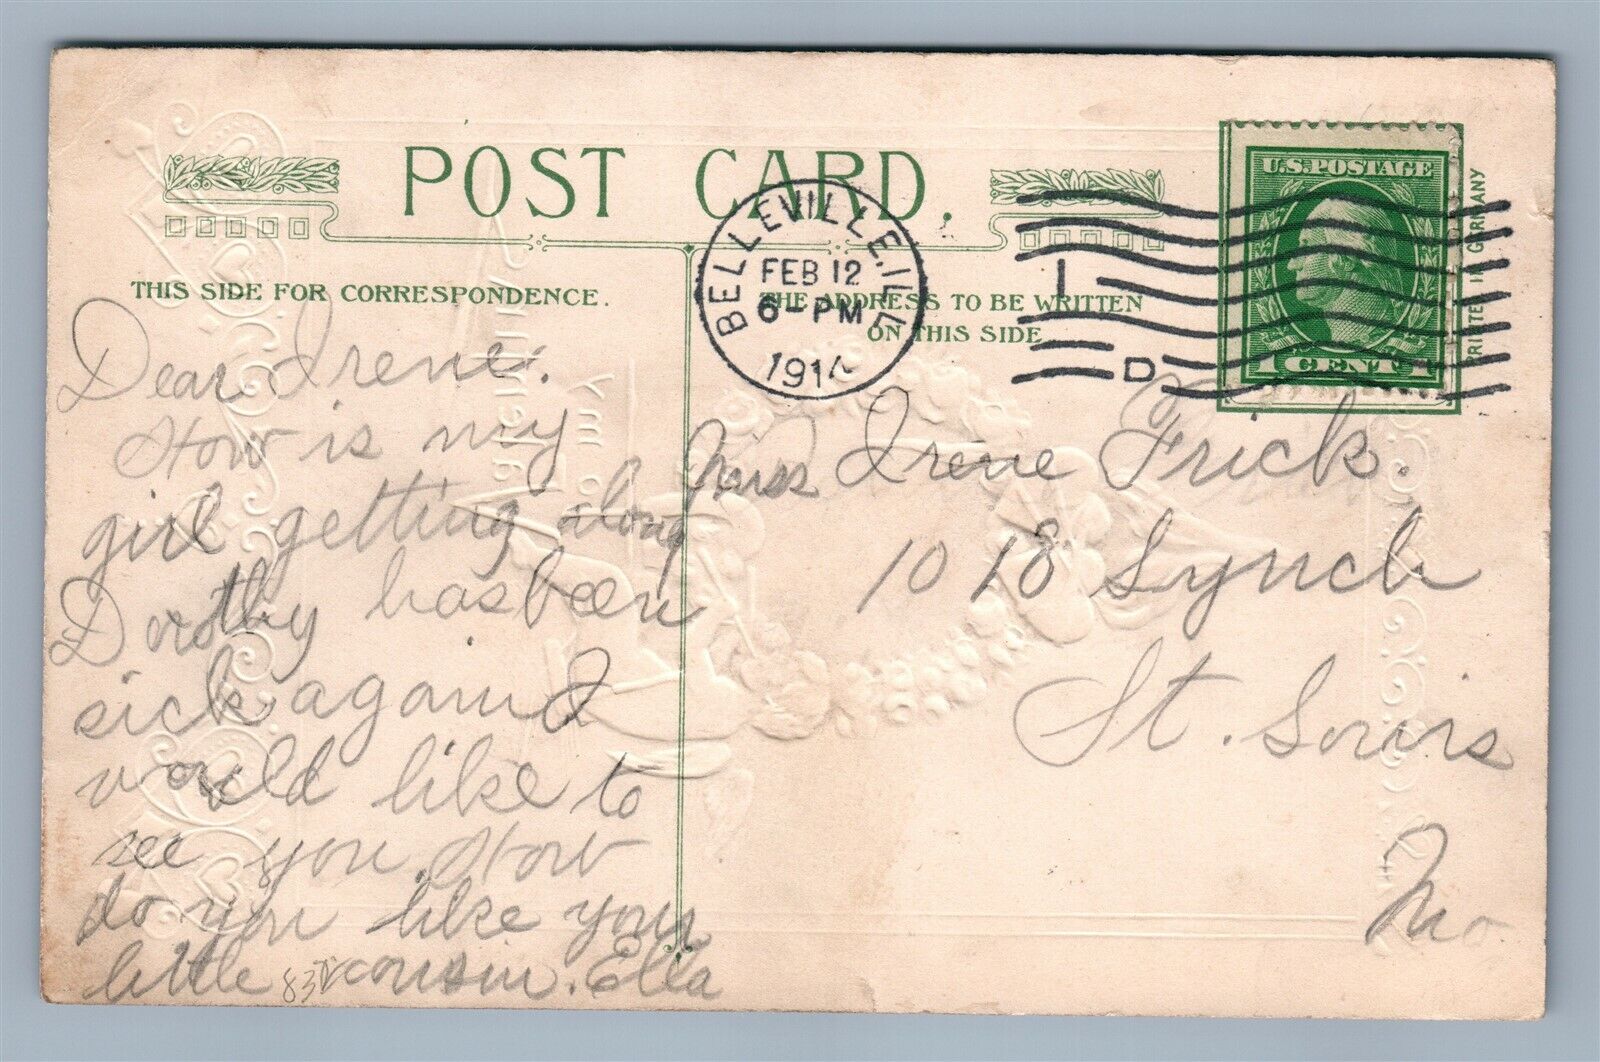 POST CARD.
THIS SIDE FOR CORRESPONDENCE.
THE ADDRESS TO BE WRITTEN
ON THIS SIDE
BELLEVILLE, ILL
FEB 12
6-PM
1914
1
D
U.S. POSTAGE
1 CENT 1
PRINTED IN GERMANY
Dear Irene:
How is my
girl getting along
Dorothy has been
sick again I
would like to
see you. How
do you like your
little cousin. Ella
Miss Irene Frick.
1018 Lynch
St. Louis
Mo.
To my
Valentine